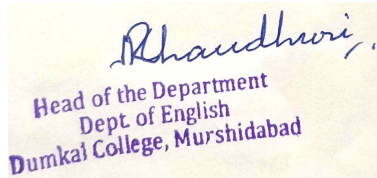 RChaudhuri,
Head of the Department
Dept. of English
Dumkal College, Murshidabad